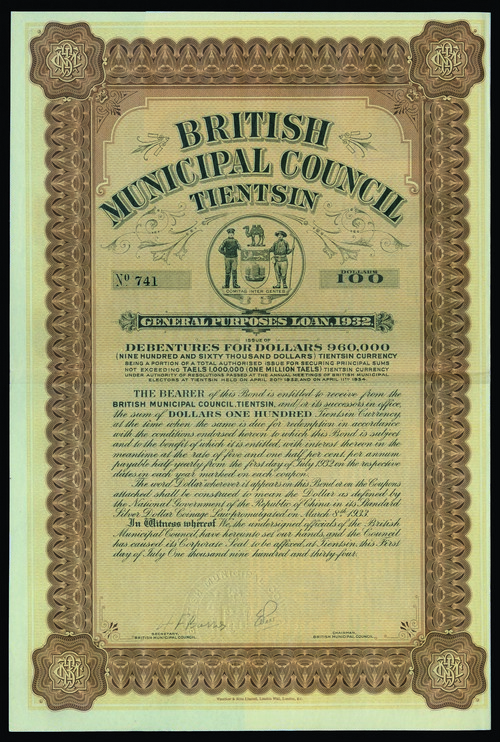 BRITISH
MUNICIPAL COUNCIL
TIENTSIN
Nº 741
DOLLARS
100
COMITAS INTER GENTES
GENERAL PURPOSES LOAN, 1932
ISSUE OF
DEBENTURES FOR DOLLARS 960,000
(NINE HUNDRED AND SIXTY THOUSAND DOLLARS) TIENTSIN CURRENCY
BEING A PORTION OF A TOTAL AUTHORISED ISSUE FOR SECURING PRINCIPAL SUMS
NOT EXCEEDING TAELS 1,000,000 (ONE MILLION TAELS) TIENTSIN CURRENCY
UNDER AUTHORITY OF RESOLUTIONS PASSED AT THE ANNUAL MEETINGS OF BRITISH MUNICIPAL
ELECTORS AT TIENTSIN HELD ON APRIL 20TH 1932, AND ON APRIL 11TH 1934.
THE BEARER of this Bond is entitled to receive from the
BRITISH MUNICIPAL COUNCIL, TIENTSIN, and/or its successors in office,
the sum of DOLLARS ONE HUNDRED Tientsin Currency,
at the time when the same is due for redemption in accordance
with the conditions endorsed hereon to which this Bond is subject
and to the benefit of which it is entitled, with interest thereon in the
meantime at the rate of five and one half per cent. per annum
payable half-yearly from the first day of July 1932 on the respective
dates in each year marked on each coupon.
The word Dollar wherever it appears on this Bond or on the Coupons
attached shall be construed to mean the Dollar as defined by
the National Government of the Republic of China in its Standard
Silver Dollar Coinage Law promulgated on March 8th 1933.
In Witness whereof We, the undersigned officials of the British
Municipal Council, have hereunto set our hands and the Council
has caused its Corporate Seal to be affixed, at Tientsin, this First
day of July One thousand nine hundred and thirty-four.
SECRETARY,
BRITISH MUNICIPAL COUNCIL
CHAIRMAN,
BRITISH MUNICIPAL COUNCIL